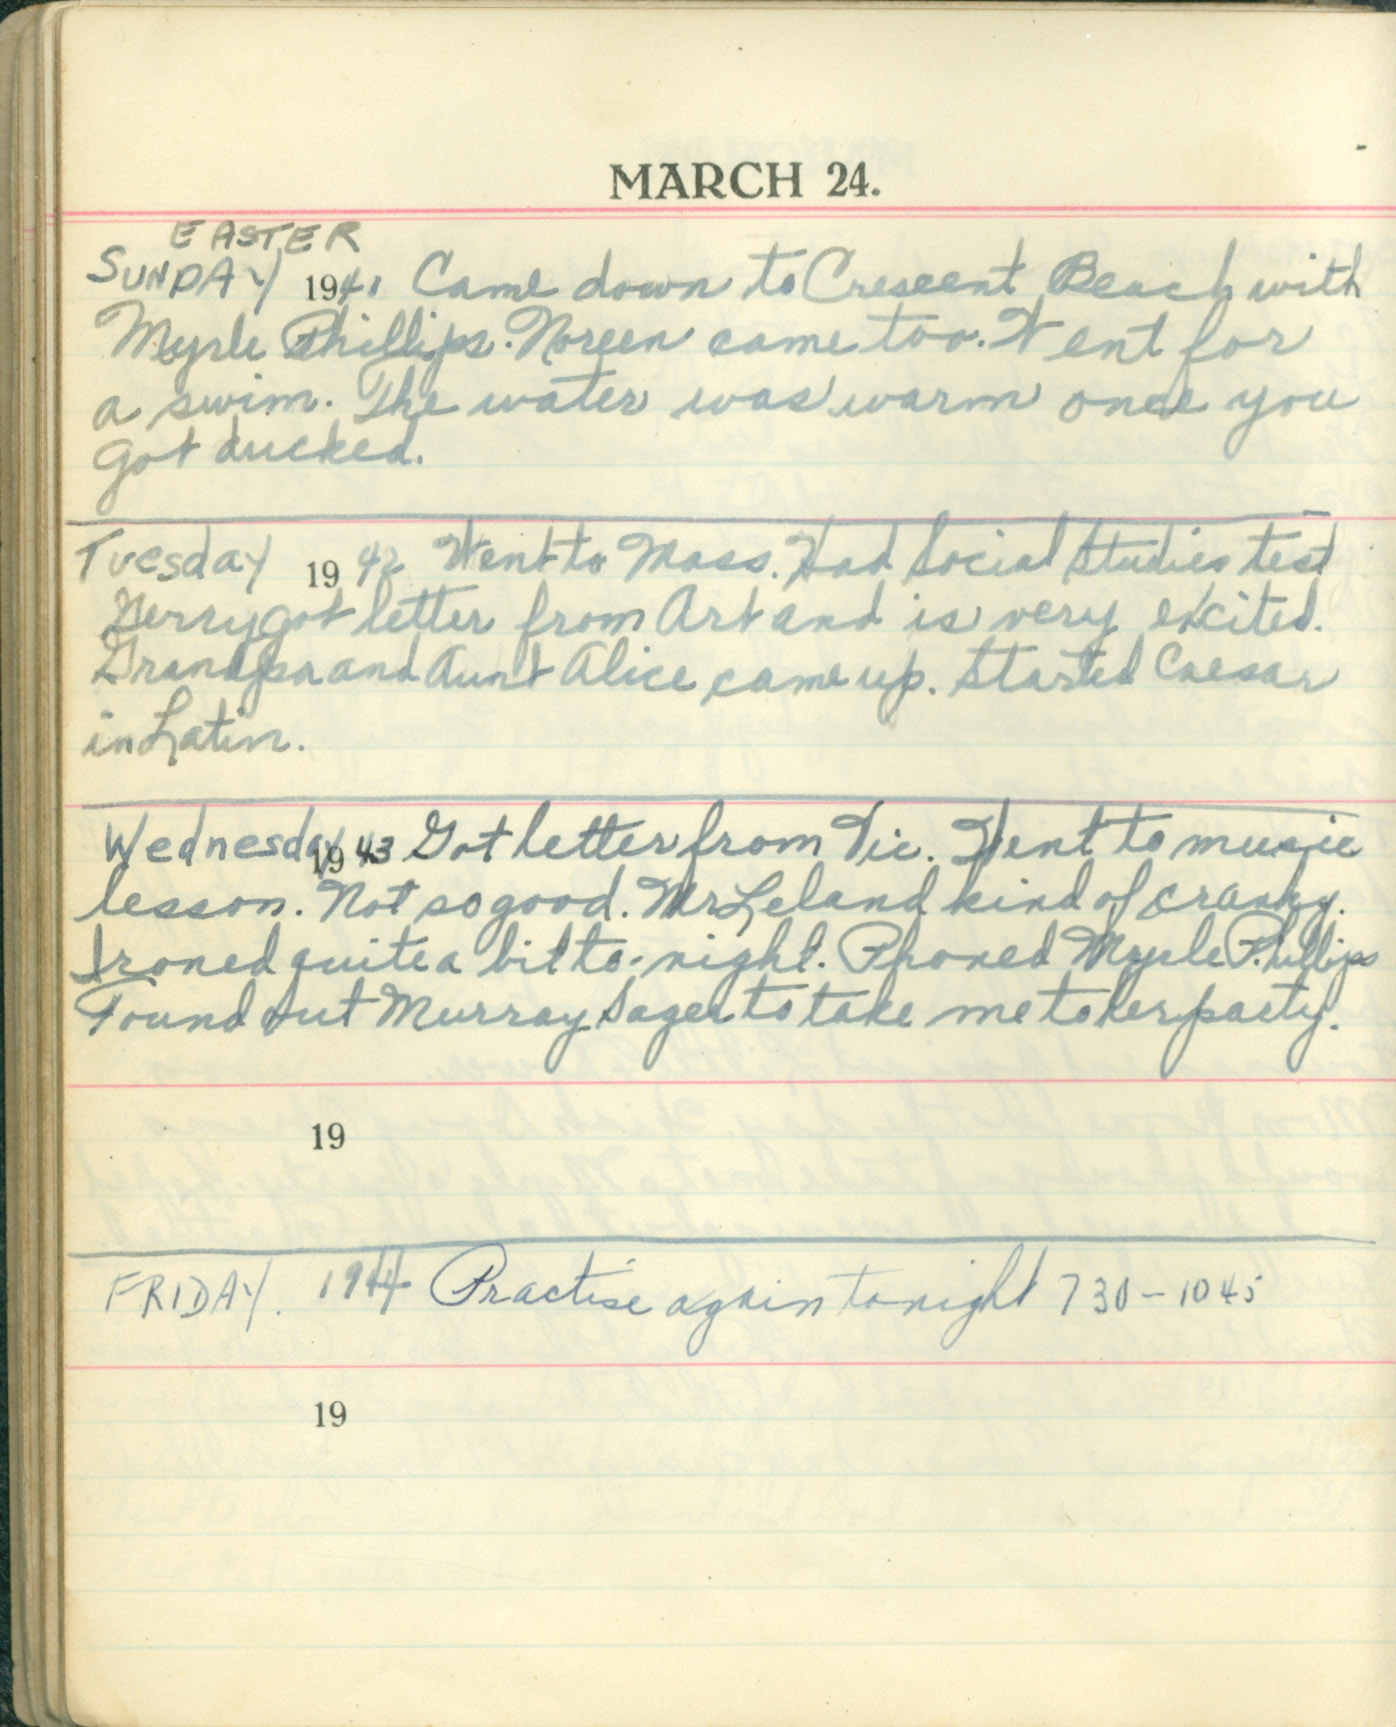 MARCH 24.
EASTER
SUNDAY 1941 Came down to Crescent Beach with
Myrle Phillips. Noreen came too. Went for
a swim. The water was warm once you
got ducked.
Tuesday 19 42 Went to Mass. Had Social Studies test
Gerry got letter from Art and is very excited.
Grandpa and Aunt Alice came up. Started Caesar
in Latin.
Wednesday 19 43 Got letter from Vic. Went to music
lesson. Not so good. Mr Leland kind of cranky.
Ironed quite a bit to-night. Phoned Myrle Phillips
Found out Murray Sager to take me to her party.
19
FRIDAY. 1944 Practise again tonight 7 30 - 10 45
19